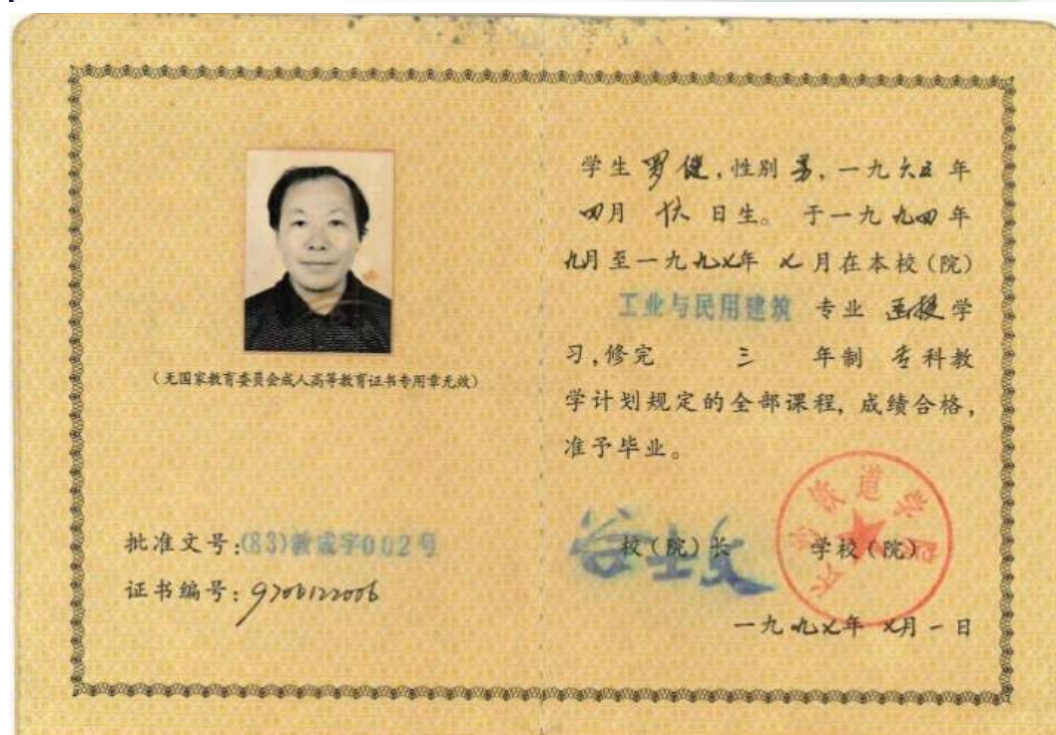 (无国家教育委员会成人高等教育证书专用章无效)
批准文号:(83)教成字002号
证书编号:9700122006
学生 罗健,性别 男,一九六五年
四月 十六 日生。于一九九四年
九月至一九九七年 七月在本校(院)
工业与民用建筑 专业 函授学
习,修完 三 年制 专科教
学计划规定的全部课程,成绩合格,
准予毕业。
校(院)长 学校(院)
谷士文
长沙铁道学院
一九九七年 七月一日